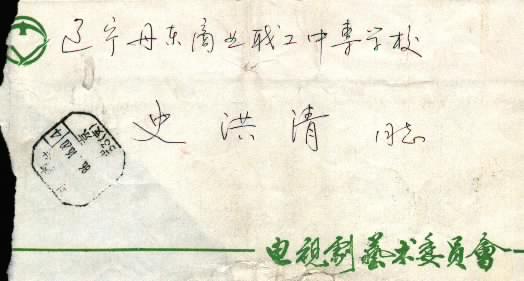 辽宁丹东商业职工中专学校
史洪清 同志
电视剧艺术委员会